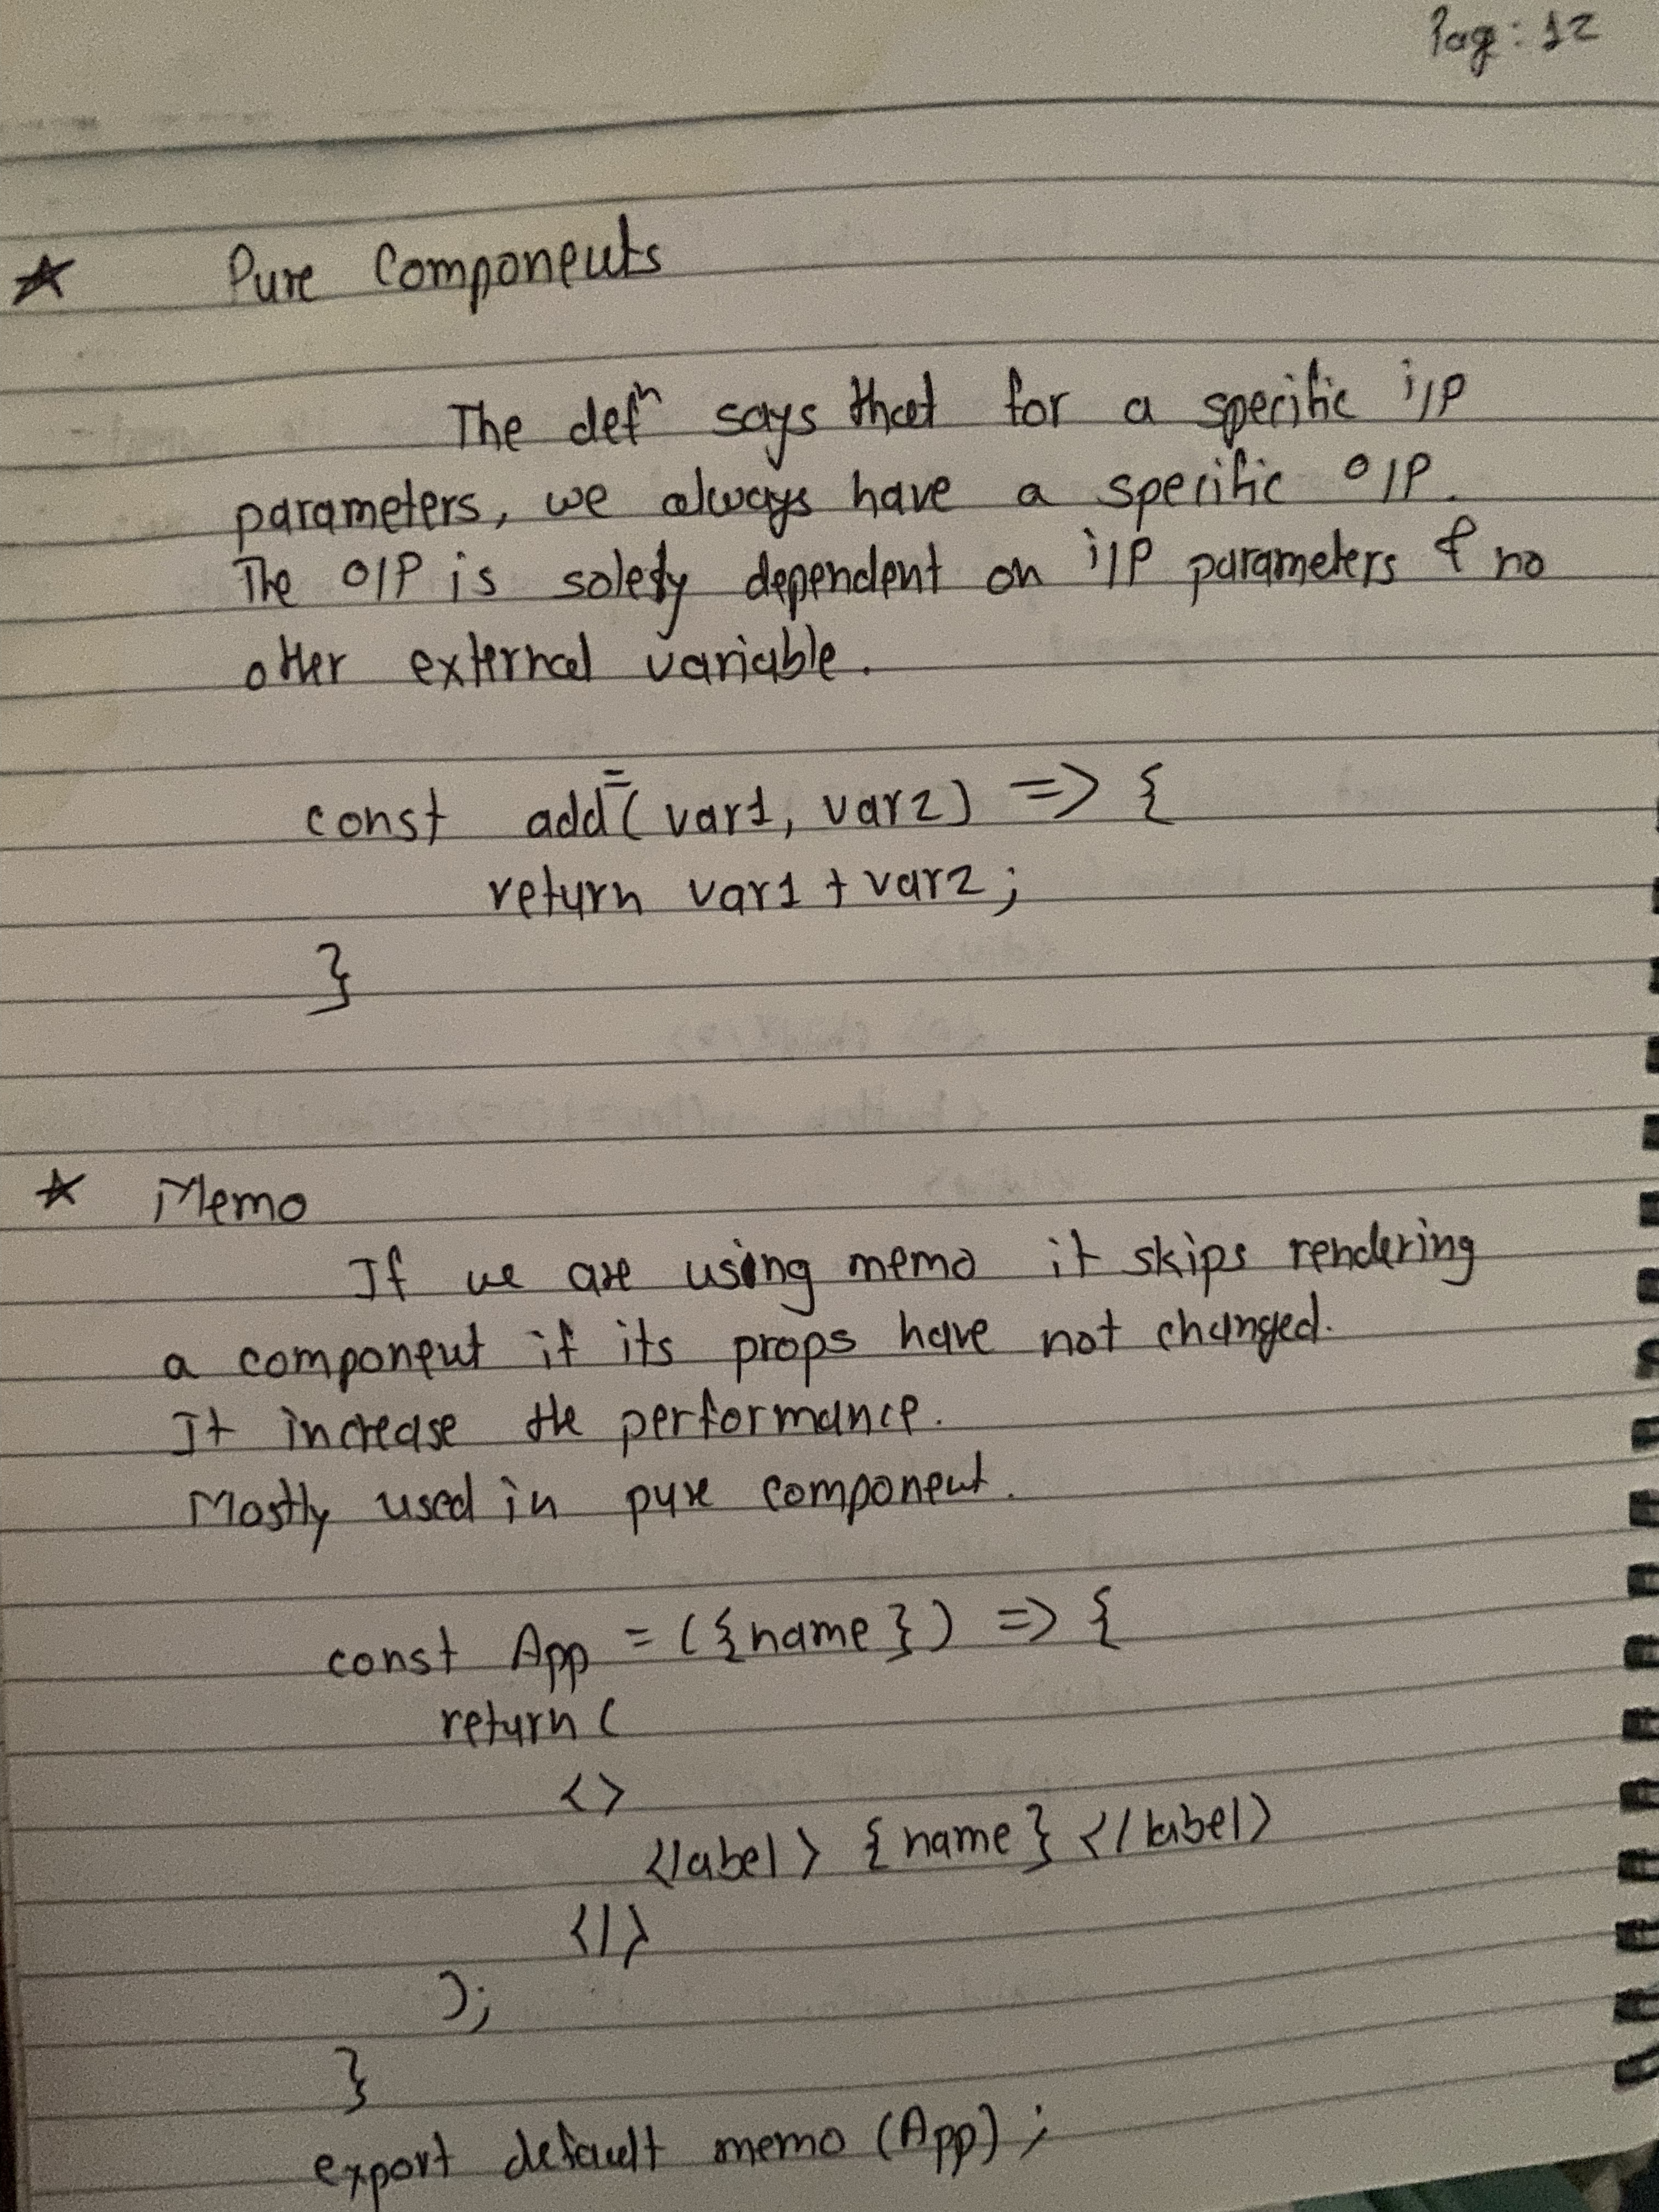 Pag: 12
★ Pure Components
The defⁿ says that for a specific i/p
parameters, we always have a specific o/p.
The o/p is solely dependent on i/p parameters & no
other external variable.
const add = (var1, var2) => {
return var1 + var2;
}
★ Memo
If we are using memo it skips rendering
a component if its props have not changed.
It increase the performance.
Mostly used in pure component.
const App = ({name}) => {
return (
<>
<label> {name} </label>
</>
);
}
export default memo (App);